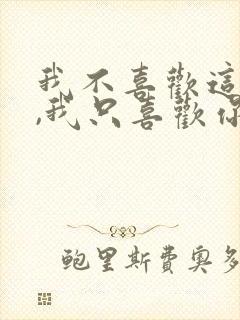 我不喜歡這
,我只喜歡你
鲍里斯費奧多